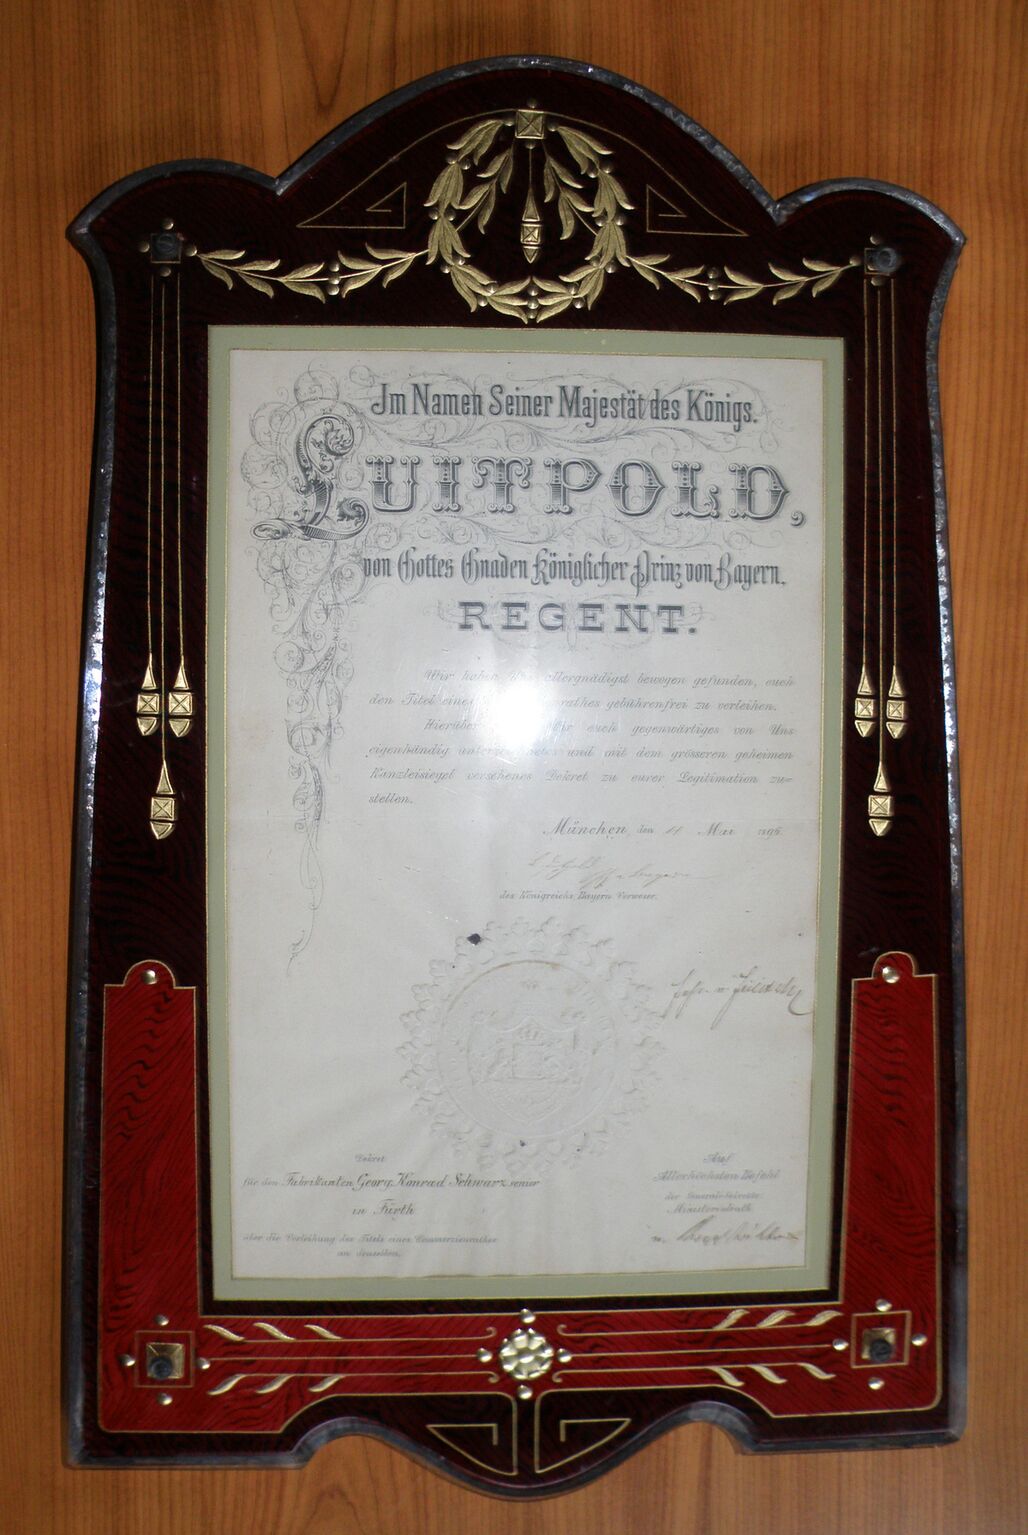 Im Namen Seiner Majestät des Königs.
LUITPOLD,
von Gottes Gnaden Königlicher Prinz von Bayern,
REGENT.
Wir haben Uns allergnädigst bewogen gefunden, euch
den Titel eines rathes gebührenfrei zu verleihen.
Hierüber Wir euch gegenwärtiges von Uns
eigenhändig unterzeichnetes und mit dem grösseren geheimen
Kanzleisiegel versehenes Dekret zu eurer Legitimation zu=
stellen.
München, den 11 Mai 1896.
des Königreichs Bayern Verweser.
Dekret
für den Fabrikanten Georg Konrad Schwarz senior
in Fürth
über die Verleihung des Titels eines Commerzienrathes
an denselben.
Auf
Allerhöchsten Befehl
der General-Sekretär
Ministerialrath